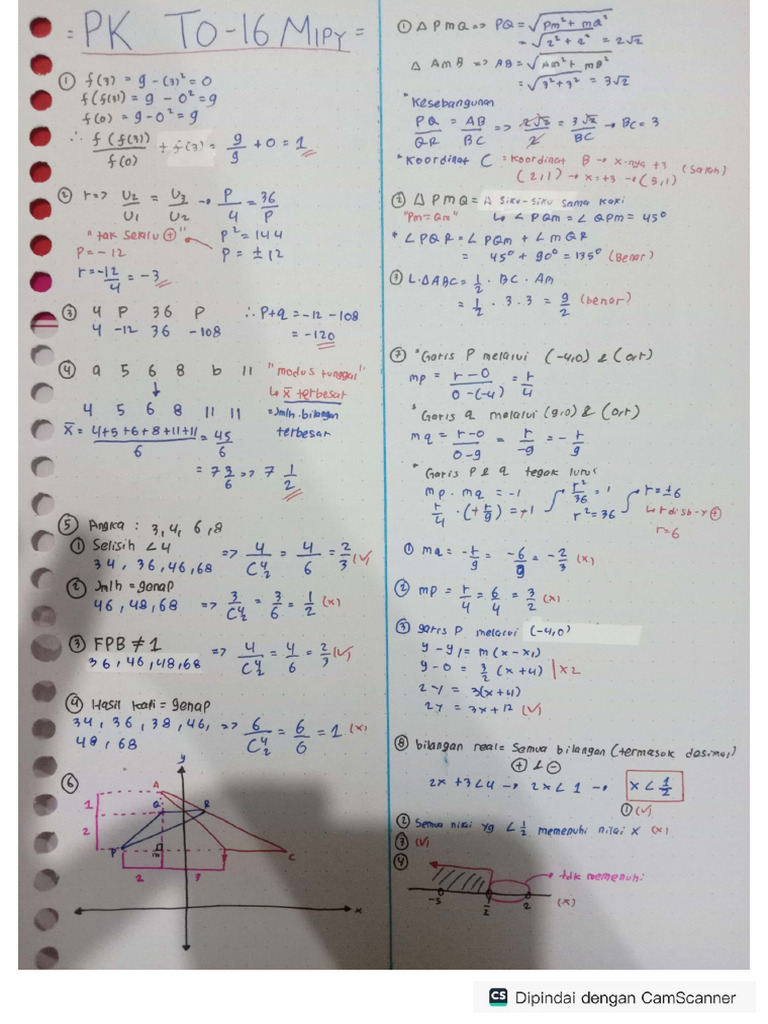 = PK TO-16 MIPY =
① f(3) = 9 - (3)² = 0
f(f(3)) = 9 - 0² = 9
f(0) = 9 - 0² = 9
∴ f(f(3))/f(0) + f(3) = 9/9 + 0 = 1
② r => U₂/U₁ = U₃/U₂ → P/4 = 36/P
"tak selalu ⊕" P² = 144
P = -12 P = ± 12
r = -12/4 = -3
③ 4 P 36 P ∴ P+q = -12 - 108
4 -12 36 -108 = -120
④ a 5 6 8 b 11 "modus tunggal"
↓ ↳ x̄ terbesar
4 5 6 8 11 11 = Jmlh. bilangan
x̄ = 4+5+6+8+11+11/6 = 45/6 terbesar
= 7 3/6 => 7 1/2
⑤ Angka : 3, 4, 6, 8
① Selisih < 4
34, 36, 46, 68 => 4/C⁴₂ = 4/6 = 2/3 (√)
② Jmlh = genap
46, 48, 68 => 3/C⁴₂ = 3/6 = 1/2 (x)
③ FPB ≠ 1
36, 46, 48, 68 => 4/C⁴₂ = 4/6 = 2/3 (√)
④ Hasil kali = genap
34, 36, 38, 46, => 6/C⁴₂ = 6/6 = 1 (x)
48, 68
⑥
y
A
1 Q R
2
P m C
2 3
x
① Δ PMQ => PQ = √Pm² + mQ²
= √2² + 2² = 2√2
Δ AMB => AB = √Am² + mB²
= √3² + 3² = 3√2
* Kesebangunan
PQ/QR = AB/BC => 2√2/2 = 3√2/BC → BC = 3
* Koordinat C = Koordinat B → x-nya +3 (Salah)
(2,1) → x = +3 → (5,1)
② Δ PMQ = Δ Siku-siku sama kaki
"Pm = Qm" ↳ ∠ PQM = ∠ QPM = 45°
* ∠ PQR = ∠ PQM + ∠ MQR
= 45° + 90° = 135° (Benar)
③ L. ΔABC = 1/2 · BC · AM
= 1/2 · 3 · 3 = 9/2 (benar)
⑦ * Garis P melalui (-4,0) & (0,r)
mp = r - 0/0 - (-4) = r/4
* Garis q melalui (9,0) & (0,r)
mq = r-0/0-9 = r/-9 = - r/9
* Garis P & q tegak lurus
mp . mq = -1 r²/36 = 1 r = ±6
r/4 . (+ r/9) = +1 r² = 36 ↳ r di sb-y ⊕
r = 6
① mq = - r/9 = -6/9 = - 2/3 (x)
② mp = r/4 = 6/4 = 3/2 (x)
③ garis P melalui (-4,0)
y - y₁ = m (x - x₁)
y - 0 = 3/2 (x + 4) | x 2
2y = 3(x+4)
2y = 3x + 12 (√)
⑧ bilangan real = Semua bilangan (termasuk desimal)
⊕ & ⊖
2x + 3 < 4 → 2x < 1 → x < 1/2
① (√)
② Semua nilai yg < 1/2 memenuhi nilai x (x)
③ (√)
④
tdk memenuhi
-5 1/2 2 (x)
CS Dipindai dengan CamScanner